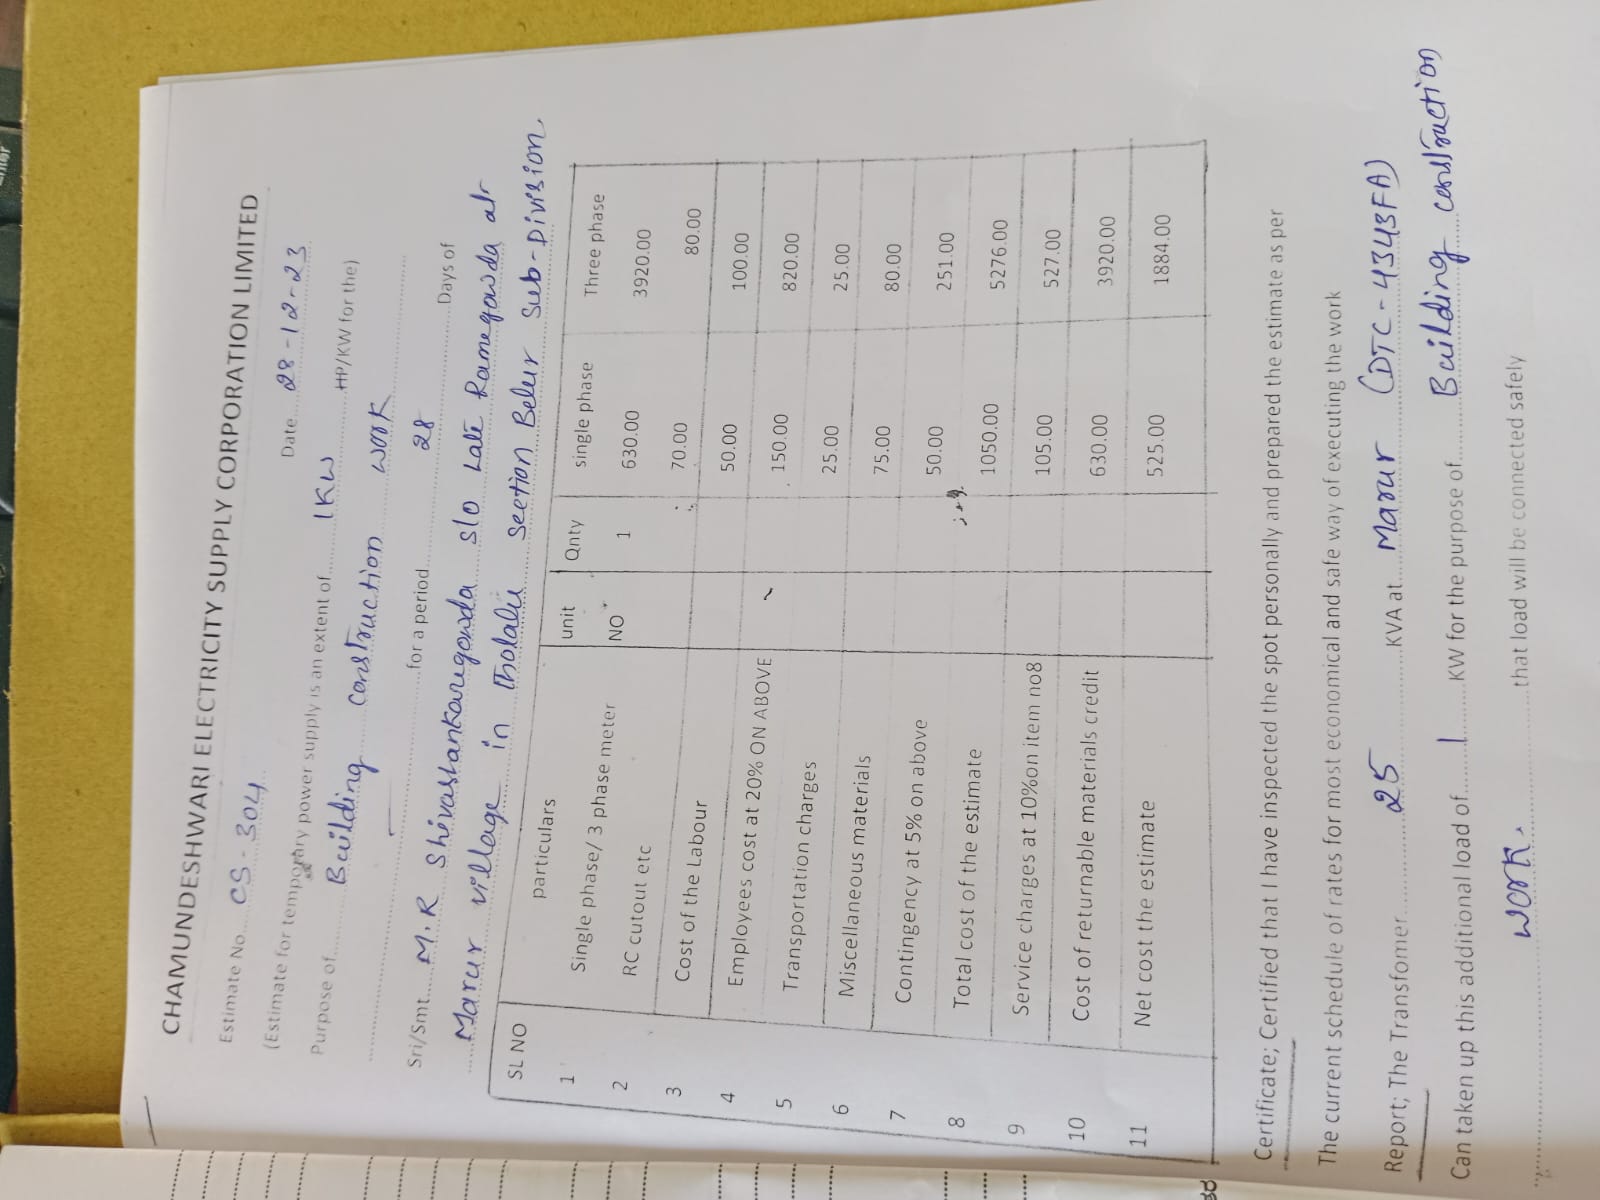 CHAMUNDESHWARI ELECTRICITY SUPPLY CORPORATION LIMITED
Estimate No.... CS-304 Date 28-12-23
(Estimate for temporary power supply is an extent of.... 1KW ....HP/KW for the)
Purpose of.... Building construction work
Sri/Smt.... for a period.... 28 ....Days of
M.R Shivashankaregowda S/o Late Ramegowda at
Marur village in Tholalu Section Belur Sub-Division
SL NO particulars unit Qnty single phase Three phase
1 Single phase/ 3 phase meter NO 1 630.00 3920.00
2 RC cutout etc 70.00 80.00
3 Cost of the Labour 50.00 100.00
4 Employees cost at 20% ON ABOVE 150.00 820.00
5 Transportation charges 25.00 25.00
6 Miscellaneous materials 75.00 80.00
7 Contingency at 5% on above 50.00 251.00
8 Total cost of the estimate 1050.00 5276.00
9 Service charges at 10%on item no8 105.00 527.00
10 Cost of returnable materials credit 630.00 3920.00
11 Net cost the estimate 525.00 1884.00
Certificate; Certified that I have inspected the spot personally and prepared the estimate as per
The current schedule of rates for most economical and safe way of executing the work
Report; The Transfomer.... 25 ....KVA at.... Marur (DTC-4343FA)
Can taken up this additional load of.... 1 ....KW for the purpose of.... Building construction
work. ....that load will be connected safely